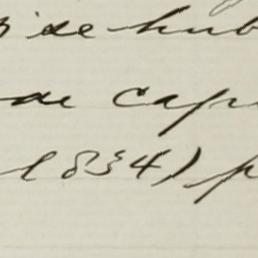 se hub
de capi
1834) p